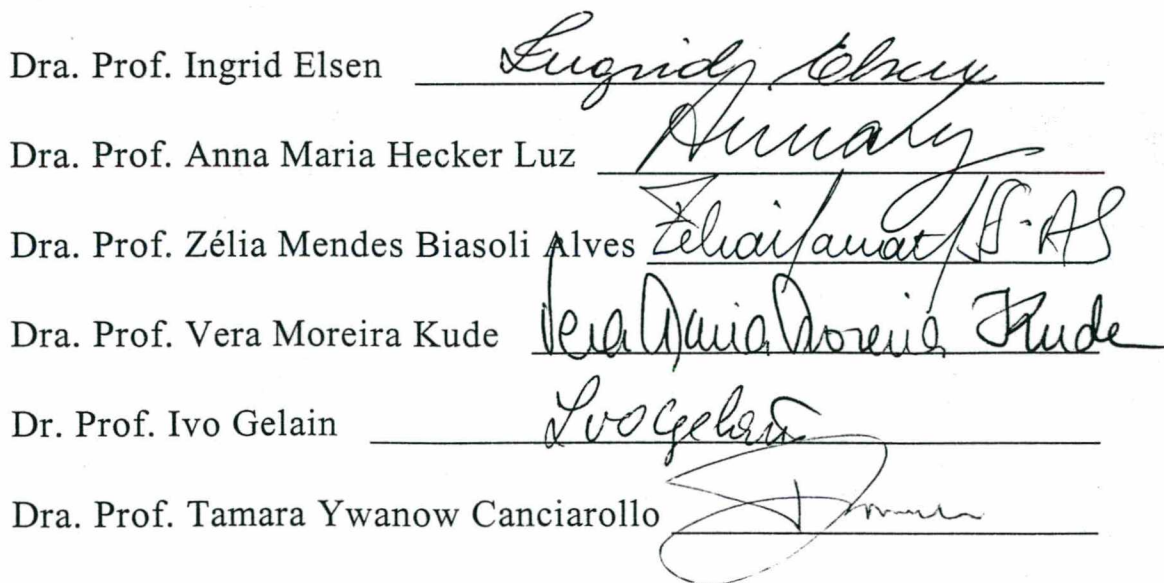 Dra. Prof. Ingrid Elsen Ingrid Elsen
Dra. Prof. Anna Maria Hecker Luz
Dra. Prof. Zélia Mendes Biasoli Alves Zélia
Dra. Prof. Vera Moreira Kude Vera Maria Moreira Kude
Dr. Prof. Ivo Gelain Ivo Gelain
Dra. Prof. Tamara Ywanow Canciarollo